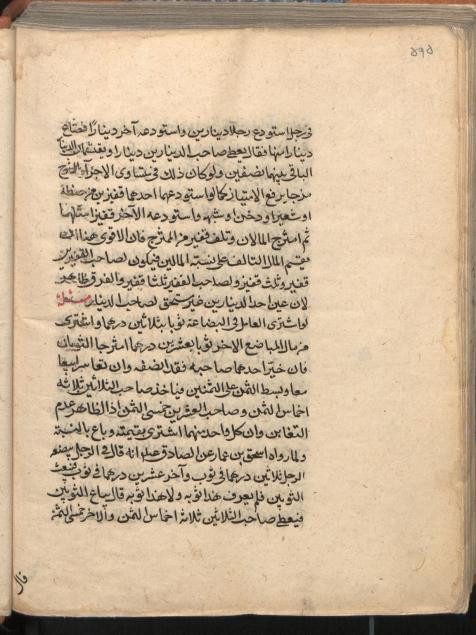 ۵۹۵
فى رجل استودع رجلا دينارين واستودعه آخر دينارًا فضاع
دينار منها فقال يعطى صاحب الدينارين دينارا ويقتسمان الدينار
الباقى بينهما نصفين ولو كان ذلك فى متساوى الاجزاء
مزجا يرفع الامتياز كما لو استودعهما احدهما قفيزين من حنطة
او شعير او دخن او شبهه واستودعه الآخر قفيزا مثلهما
ثم امتزج المالان وتلف قفيز من الممتزج فان الاقوى هنا ان
يقسم المال التالف على نسبة المالين فيكون لصاحب القفيزين
قفيز وثلث قفيز ولصاحب القفيز ثلثا قفيز والفرق ظاهر
لان عين احد الدينارين غير مستحق لصاحب الدينار مسئلة
لو اشترى العامل فى البضاعة ثوبا بثلاثين درهما واشترى
من مال المباضع الاخر ثوبا بعشرين درهما امتزجا الثوبان
فان خيّر احدهما صاحبه فقد انصفه وان تعاسرا بيعا
معا وبسط الثمن على الثمنين فياخذ صاحب الثلاثين ثلاثة
اخماس الثمن وصاحب العشرين خمسى الثمن اذ الظاهر عدم
التغابن وان كل واحد منهما اشترى بقيمته وباع بالنسبة
ولما رواه اسحق بن عمار عن الصادق عليه انه قال فى الرجل يبضعه
الرجل ثلاثين درهما فى ثوب وآخر عشرين درهما فى ثوب فبعث
الثوبين فلم يعرف هذا ثوبه ولا هذا ثوبه قال يباع الثوبين
فيعطى صاحب الثلاثين ثلاثة اخماس الثمن والاخر خمسى الثمن
قال